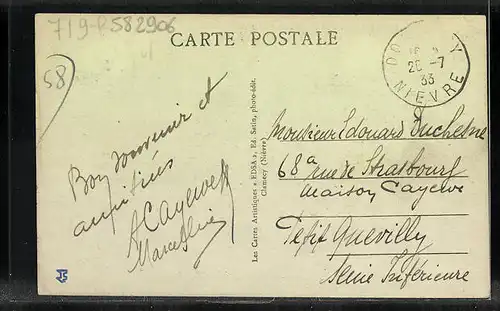 719-R582906
58
CARTE POSTALE
26-7
33
NIEVRE
Bon souvenir et
amitiés
Marcelline
Les Cartes Artistiques « EDSA », Ed. Satin, photo-édit.
Clamecy (Nièvre)
Monsieur Edouard Duchesne
68 a rue de Strasbourg
Maison Cayeux
Petit Quevilly
Seine Inférieure